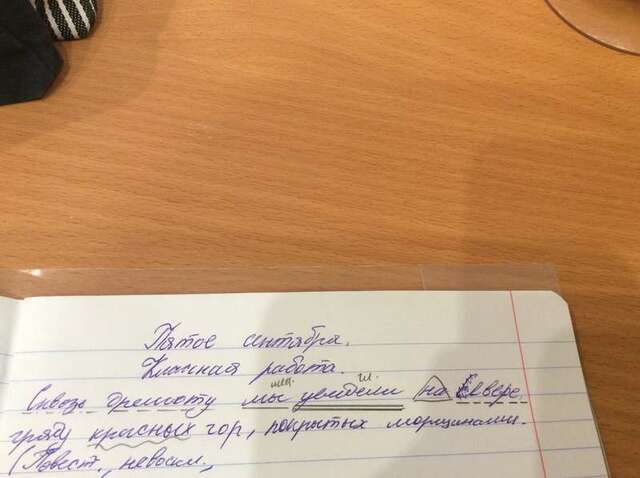 Пятое сентября.
Классная работа.
мест. гл.
Сквозь дремоту мы увидели на севере
гряду красных гор, покрытых морщинами.
(Повест., невоскл.,